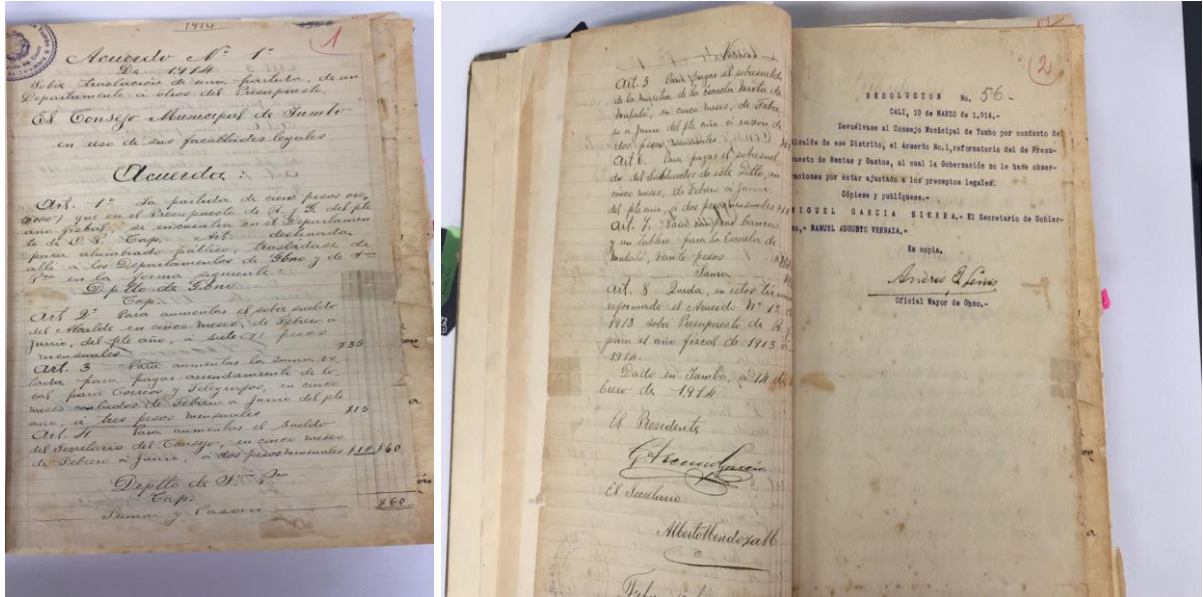 1914
1
Acuerdo Nº 1º
De 1914
Sobre traslación de una partida, de un
Departamento á otros del Presupuesto.
El Consejo Municipal de Yumbo
en uso de sus facultades legales
Acuerda:
Art. 1º La partida de cien pesos oro,
que en el Presupuesto de R. y G. del pte
año fiscal, se encuentra en el Departamen
to de Cap. Art. destinada
para alumbrado público, trasládase de
allí a los Departamentos de Gbno y de
en la forma siguiente
Deptto de Gbno
Cap.
Art 2º Para aumentar el sobresueldo
del Alcalde en cinco meses, de Febrero á
Junio, del pte año, a siete pesos
mensuales $35
Art. 3 Para aumentar la suma vo
tada para pagar arrendamiento de lo
cal para Correos y Telégrafos, en cinco
meses contados de Febrero a Junio del pte
año, á tres pesos mensuales $15
Art. 4 Para aumentar el sueldo
del Secretario del Consejo, en cinco meses
de Febrero á Junio, a dos pesos mensuales $10 $60
Deptto de
Cap.
Suma y Pasan $60
Vienen
Art. 5 Para pagar el sobresueldo
de la maestra de la Escuela Mixta de
Mulaló, en cinco meses, de Febre
ro a Junio del pte año a razón de
dos pesos mensuales
Art 6. Para pagar el sobresuel
do del de este Dtto, en
cinco meses, de Febrero á Junio
del pte año, a dos pesos mensuales
Art. 7. Para comprar bancas
y un tablero para la Escuela de
Mulaló, veinte pesos
Suma
Art. 8 Queda, en estos térmi
reformado el Acuerdo Nº 1º
1913 sobre Presupuesto de R. y
para el año fiscal de 1913 a
1914.
Dado en Yumbo, a 14 de
brero de 1914
El Presidente
El Secretario
Alberto Mendoza M
2
RESOLUCION No. 56-
CALI, 10 de MARZO de 1.914,-
Devuélvase al Consejo Municipal de Yumbo por conducto del
alcalde de ese Distrito, el Acuerdo No.1, reformatorio del de Presu-
uesto de Rentas y Gastos, al cual la Gobernación no le hace obser-
vaciones por estar ajustado a los preceptos legales.
Cópiese y publíquese.-
MIGUEL GARCIA SIERRA.- El Secretario de Gobier-
no,- MANUEL AUGUSTO VERNAZA,-
Es copia.
Oficial Mayor de Gbno.-